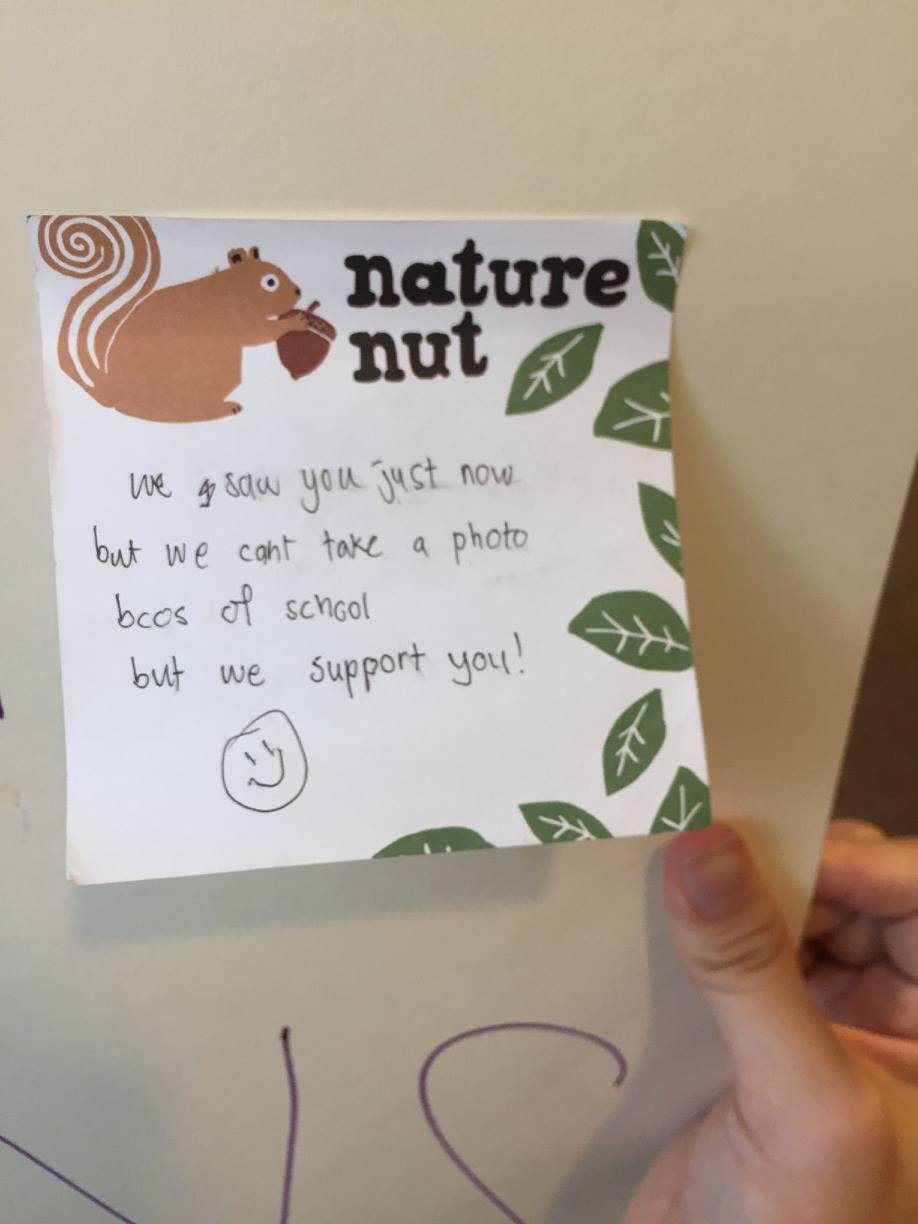 nature
nut
we saw you just now
but we cant take a photo
bcos of school
but we support you!